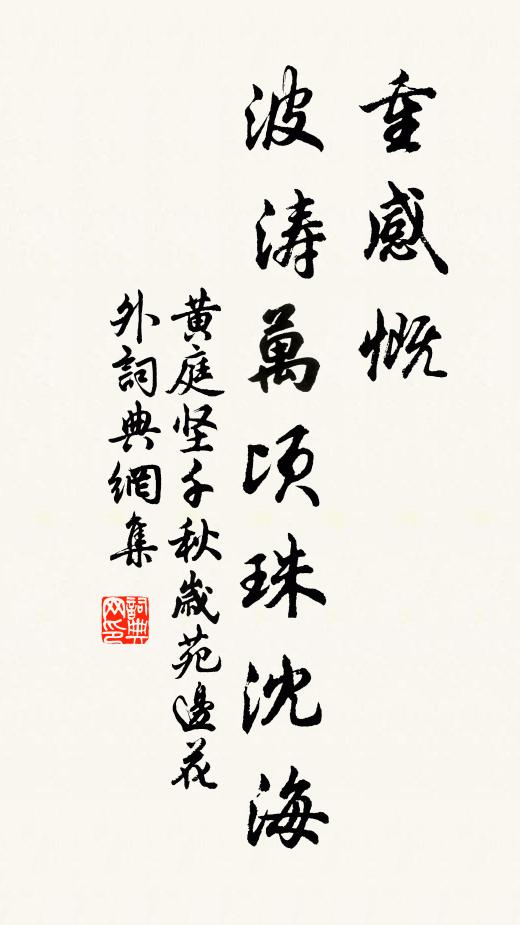 重感慨
波涛萬顷珠沈海
黄庭坚千秋歲苑邊花
外詞典網集
詞典网印